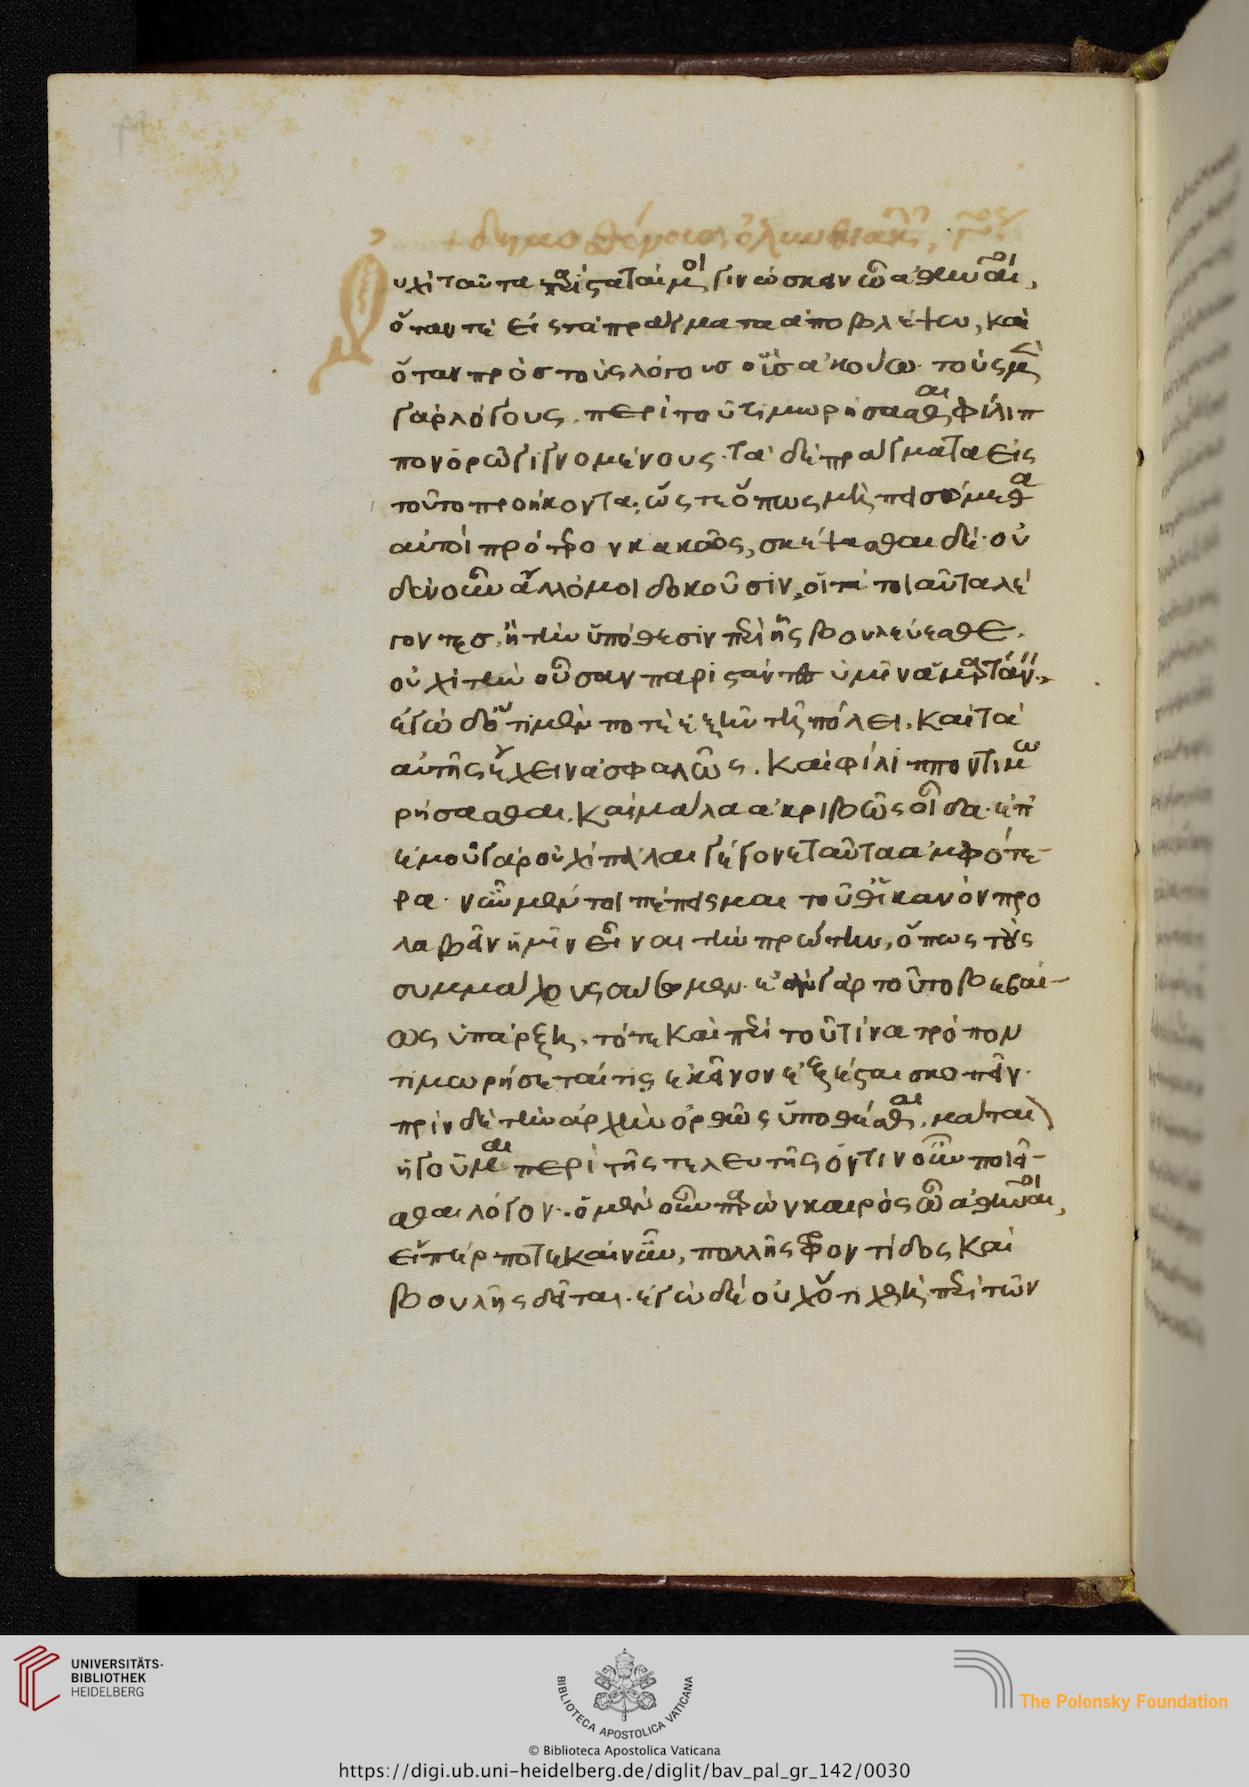 + δημοσθένους ὀλυνθιακὸς τρίτος
Οὐχὶ ταῦτα παρίσταταί μοι γινώσκειν ὦ ἄνδρες ἀθηναῖοι,
ὅταν τὲ εἰς τὰ πράγματα ἀποβλέψω, καὶ
ὅταν πρὸς τοὺς λόγους οὓς ἀκούω· τοὺς μὲν
γὰρ λόγους, περὶ τοῦ τιμωρήσασθαι φίλιπ
πον ὁρῶ γιγνομένους· τὰ δὲ πράγματα εἰς
τοῦτο προήκοντα· ὥστε ὅπως μὴ πεισόμεθα
αὐτοὶ πρότερον κακῶς, σκέψασθαι δέον· οὐ
δὲν οὖν ἄλλό μοι δοκοῦσιν, οἱ τὰ τοιαῦτα λέ
γοντες, ἢ τὴν ὑπόθεσιν περὶ ἧς βουλεύεσθε,
οὐχὶ τὴν οὖσαν παριστάντες ὑμῖν ἁμαρτάνειν,
ἐγὼ δ' ὅτι μὲν ποτὲ ἐξῆν τῇ πόλει, καὶ τὰ
αὑτῆς ἔχειν ἀσφαλῶς, καὶ φίλιππον τιμω
ρήσασθαι, καὶ μάλα ἀκριβῶς οἶδα· ἐπ'
ἐμοῦ γὰρ οὐχὶ πάλαι γέγονε ταῦτα ἀμφότε-
ρα· νῦν μέντοι πέπεισμαι τοῦθ' ἱκανὸν προ
λαβεῖν ἡμῖν εἶναι τὴν πρώτην, ὅπως τοὺς
συμμάχους σώσομεν· ἐὰν γὰρ τοῦτο βεβαί-
ως ὑπάρξῃ, τότε καὶ περὶ τοῦ τίνα τρόπον
τιμωρήσεταί τις ἐκεῖνον ἐξέσται σκοπεῖν·
πρὶν δὲ τὴν ἀρχὴν ὀρθῶς ὑποθέσθαι, μάταιον
ἡγοῦμαι περὶ τῆς τελευτῆς ὁντινοῦν ποιεῖ-
σθαι λόγον· ὁ μὲν οὖν παρὼν καιρὸς ὦ ἄνδρες ἀθηναῖοι,
εἴπέρ ποτε καὶ νῦν, πολλῆς φροντίδος καὶ
βουλῆς δεῖται· ἐγὼ δὲ οὐχ ὅτι χρὴ περὶ τῶν
UNIVERSITÄTS-
BIBLIOTHEK
HEIDELBERG
BIBLIOTECA APOSTOLICA VATICANA
The Polonsky Foundation
© Biblioteca Apostolica Vaticana
https://digi.ub.uni-heidelberg.de/diglit/bav_pal_gr_142/0030